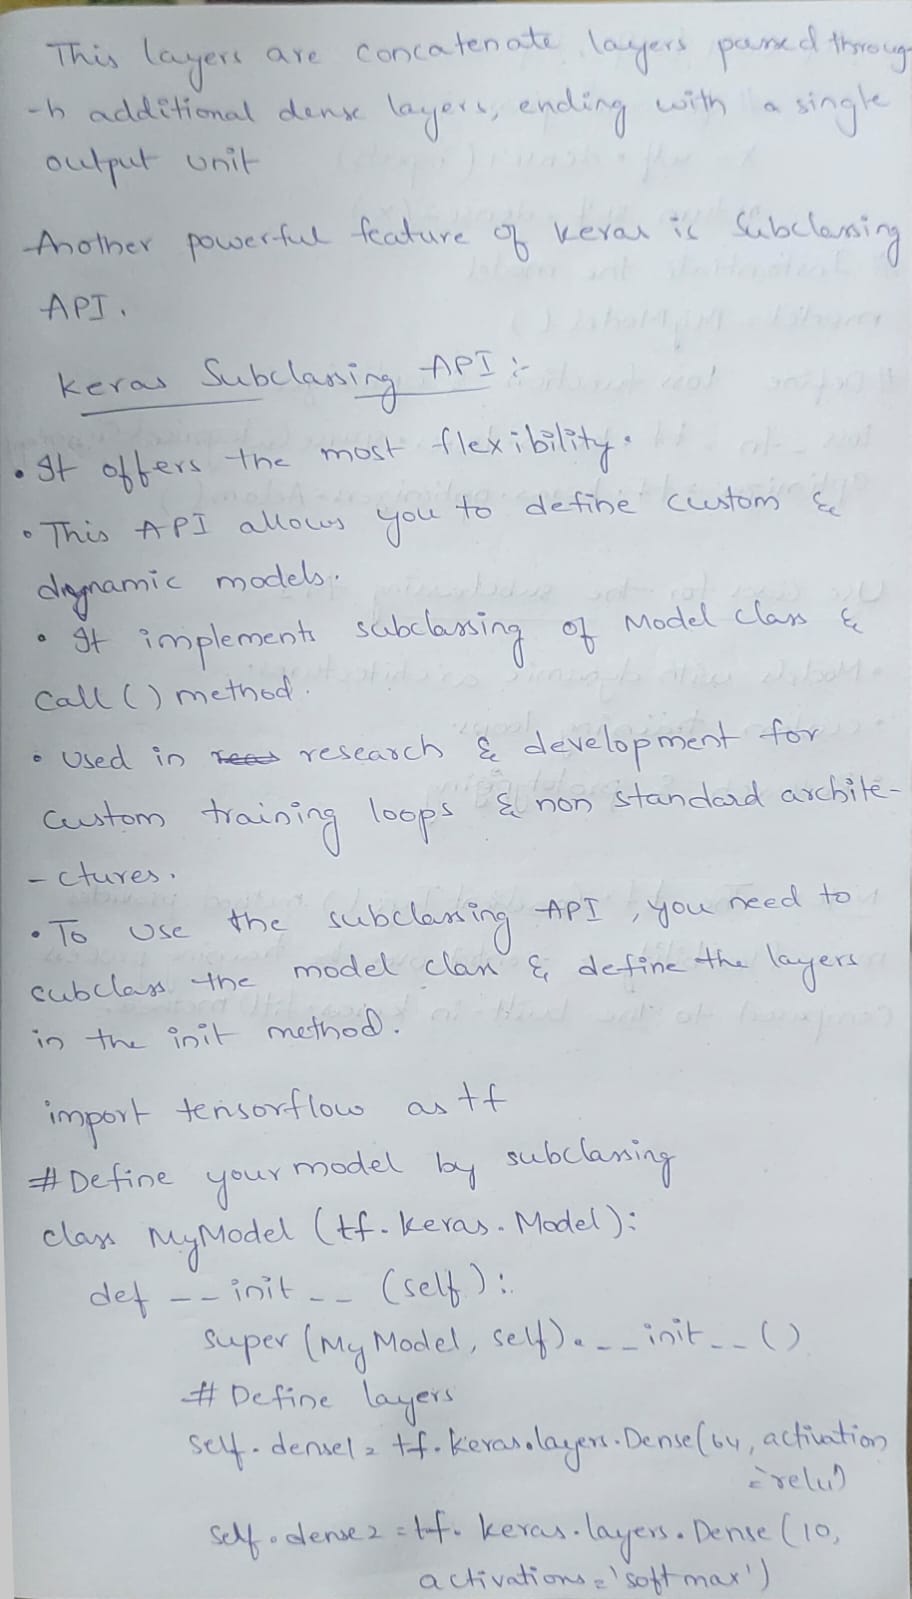 This layers are concatenate layers passed throug-
-h additional dense layers, ending with a single
output unit
Another powerful feature of Keras is Subclassing
API.
Keras Subclassing API :-
• It offers the most flexibility.
• This API allows you to define custom &
dynamic models.
• It implements subclassing of Model class &
Call () method.
• Used in research & development for
custom training loops & non standard archite-
- ctures.
• To use the subclassing API, you need to
subclass the model class & define the layers
in the init method.
import tensorflow as tf
# Define your model by subclassing
class MyModel (tf.keras.Model):
def __init__ (self):
super (MyModel, self).__init__()
# Define layers
self.dense1 = tf.keras.layers.Dense(64, activation
='relu')
self.dense2 = tf.keras.layers.Dense (10,
activations='softmax')